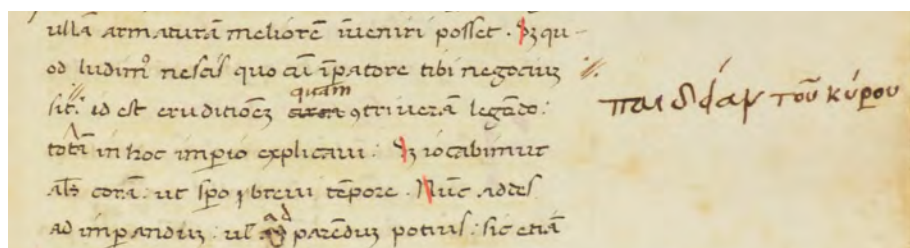 ullā armaturā meliorē īueniri posset. Sꝫ qu-
od ludim⁹ nescis quo cū īꝑatore tibi negociuꝫ
sit. id est eruditiōeꝫ quam ꝯtriuerā legēdo:
totā in hoc imꝑio explicaui: Sꝫ iocabimur
corā: ut sꝑo breui tēpore. Nūc ades
ad imꝑanduꝫ: uꝉ ad parēduꝫ potius: sic etiā
παιδείαν τοῦ κύρου